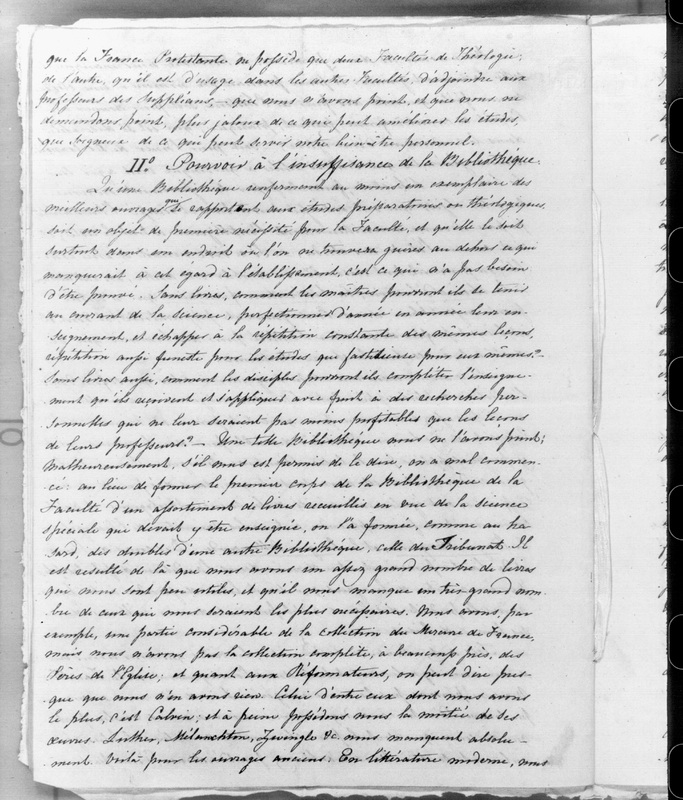 que la France Protestante ne possède que deux Facultés de Théologie;
de l'autre, qu'il est d'usage dans les autres Facultés, d'adjoindre aux
professeurs des Suppléans, — que nous n'avons point, et que nous ne
demandons point, plus jaloux de ce qui peut améliorer les études,
que soigneux de ce qui peut servir notre bien-être personnel.
II.º Pourvoir à l'insuffisance de la Bibliothèque.
Qu'une Bibliothèque renfermant au moins un exemplaire des
meilleurs ouvrages qui se rapportent aux études préparatoires ou théologiques,
soit un objet de première nécessité pour la Faculté, et qu'elle le soit
surtout dans un endroit où l'on ne trouvera guères au dehors ce qui
manquerait à cet égard à l'établissement, c'est ce qui n'a pas besoin
d'être prouvé. Sans livres, comment les maîtres pourront ils se tenir
au courant de la science, perfectionner d'année en année leur en-
seignement, et échapper à la répétition constante des mêmes leçons,
répétition aussi funeste pour les études que fastidieuse pour eux mêmes? —
Sans livres aussi, comment les disciples pourront ils compléter l'enseigne-
ment qu'ils reçoivent et s'appliquer avec fruit à des recherches per-
sonnelles qui ne leur seraient pas moins profitables que les leçons
de leurs professeurs? — Une telle Bibliothèque nous ne l'avons point;
malheureusement, s'il nous est permis de le dire, on a mal commen-
cé: au lieu de former le premier corps de la Bibliothèque de la
Faculté d'un assortiment de livres recueillis en vue de la science
spéciale qui devait y être enseignée, on l'a formée, comme au ha-
sard, des doubles d'une autre Bibliothèque, celle du Tribunat. Il
est resulté de là que nous avons un assez grand nombre de livres
qui nous sont peu utiles, et qu'il nous manque un très grand nom-
bre de ceux qui nous seraient les plus nécessaires. Nous avons, par
exemple, une partie considérable de la collection du Mercure de France,
mais nous n'avons pas la collection complète, à beaucoup près, des
Pères de l'Eglise; et quant aux Réformateurs, on peut dire pres-
que que nous n'en avons rien. Celui d'entre eux dont nous avons
le plus, c'est Calvin; et à peine possédons nous la moitié de ses
œuvres. Luther, Mélanchton, Zwingle &c. nous manquent absolu-
ment. Voilà pour les ouvrages anciens. En littérature moderne, nous